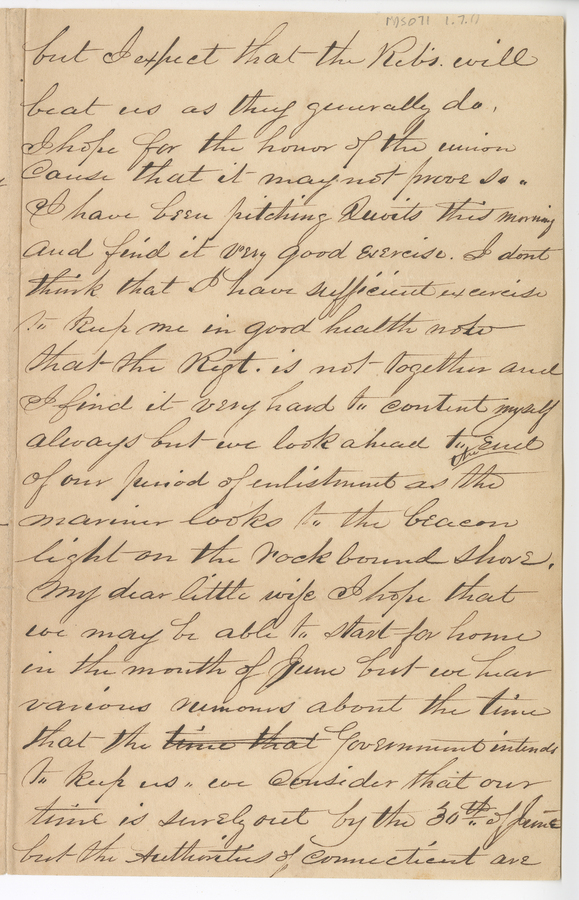 MS071 1.7.11
but I expect that the Rebs. will
beat us as they generally do,
I hope for the honor of the union
Cause that it may not prove so "
I have been pitching Quoits this morning
and find it very good exercise. I dont
think that I have sufficient excercise
to keep me in good health now
that the Regt. is not together and
I find it very hard to content myself
always but we look ahead to the End
of our period of enlistment as the
mariner looks to the beacon
light on the rock bound shore.
My dear little wife I hope that
we may be able to start for home
in the month of June but we hear
various rumours about the time
that the time that Government intends
to keep us " we consider that our
time is surely out by the 30th of June
but the Authorities of Connecticut are